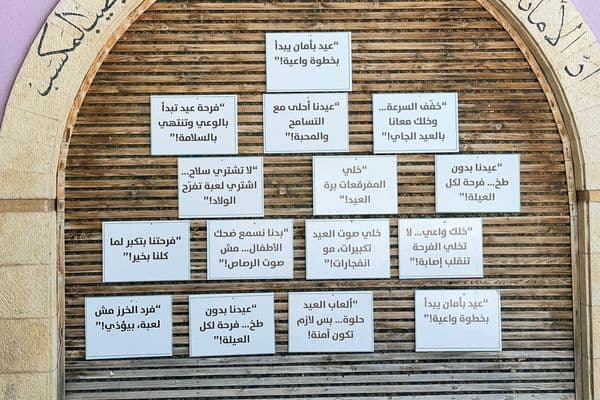 “عيد بأمان يبدأ
بخطوة واعية!”
“خفّف السرعة...
وخلك معانا
بالعيد الجاي!”
“عيدنا أحلى مع
التسامح
والمحبة!”
“فرحة عيد تبدأ
بالوعي وتنتهي
بالسلامة!”
“عيدنا بدون
طخ... فرحة لكل
العيلة!”
“خلي
المفرقعات برة
العيد!”
“لا تشتري سلاح...
اشتري لعبة تفرّح
الولاد!”
“خلك واعي... لا
تخلي الفرحة
تنقلب إصابة!”
خلي صوت العيد
تكبيرات، مو
انفجارات!”
“بدنا نسمع ضحك
الأطفال... مش
صوت الرصاص!”
“فرحتنا بتكبر لما
كلنا بخير!”
“عيد بأمان يبدأ
بخطوة واعية!”
“ألعاب العيد
حلوة... بس لازم
تكون آمنة!
“عيدنا بدون
طخ... فرحة لكل
العيلة!”
“فرد الخرز مش
لعبة، بيؤذي!”